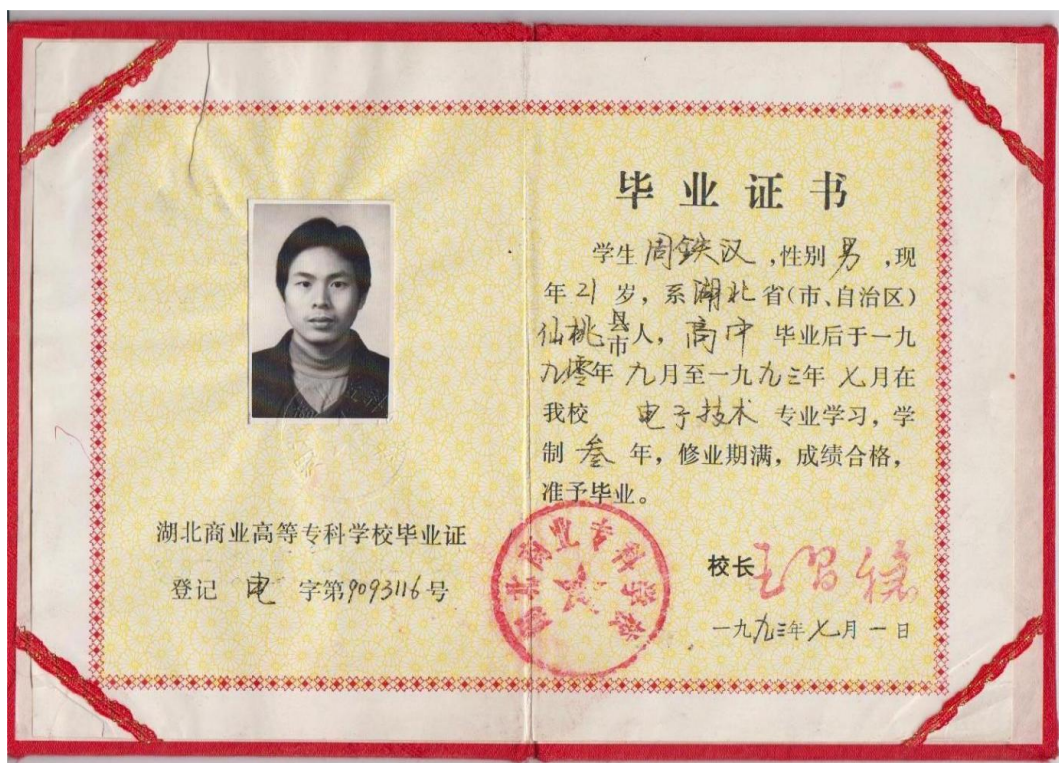 湖北商业高等专科学校毕业证
登记 电 字第9093116号
毕业证书
学生周铁汉,性别男,现
年21岁,系湖北省(市、自治区)
仙桃县市人,高中 毕业后于一九
九零年九月至一九九三年七月在
我校 电子技术 专业学习,学
制叁年,修业期满,成绩合格,
准予毕业。
校长
一九九三年七月一日